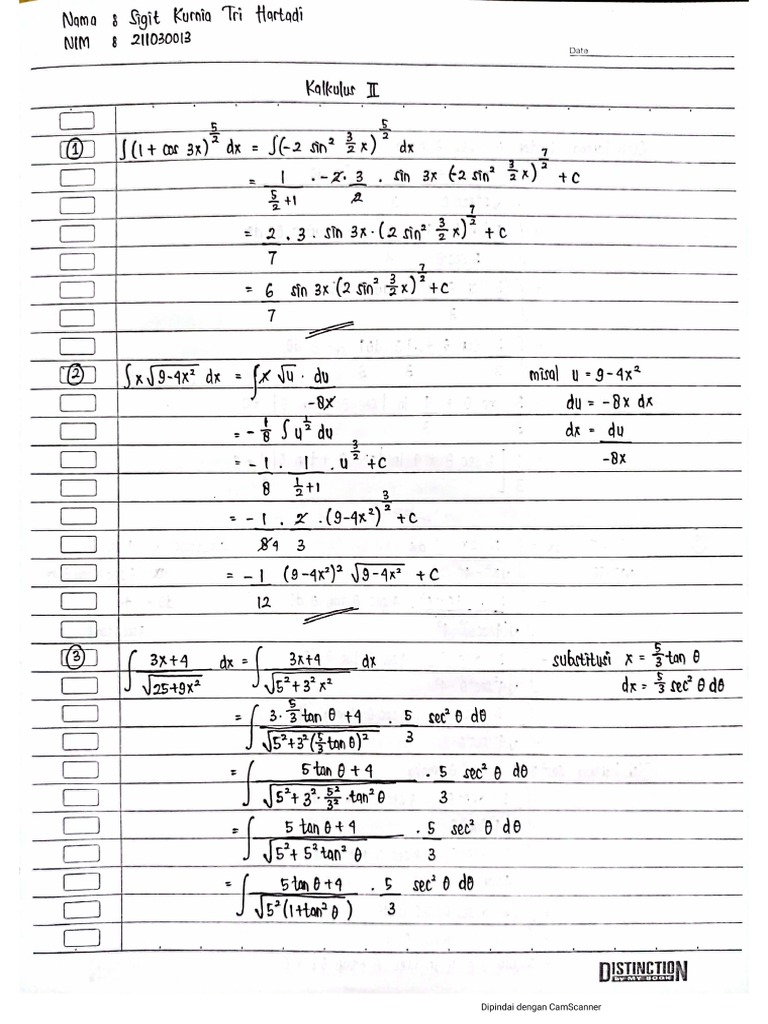 Nama : Sigit Kurnia Tri Hartadi
NIM : 211030013
Date
Kalkulus II
① ∫(1 + cos 3x)^(5/2) dx = ∫(-2 sin² 3/2 x)^(5/2) dx
= 1/(5/2+1) · -2 · 3/2 · sin 3x (-2 sin² 3/2 x)^(7/2) + C
= 2/7 · 3 · sin 3x · (2 sin² 3/2 x)^(7/2) + C
= 6/7 sin 3x (2 sin² 3/2 x)^(7/2) + C
② ∫x√(9-4x²) dx = ∫x √u · du/-8x misal u = 9-4x²
du = -8x dx
= -1/8 ∫u^(1/2) du dx = du/-8x
= -1/8 · 1/(1/2+1) · u^(3/2) + C
= -1/84 · 2/3 · (9-4x²)^(3/2) + C
= -1/12 (9-4x²)² √(9-4x²) + C
③ ∫ (3x+4)/√(25+9x²) dx = ∫ (3x+4)/√(5²+3²x²) dx substitusi x = 5/3 tan θ
dx = 5/3 sec² θ dθ
= ∫ (3 · 5/3 tan θ + 4)/√(5²+3²(5/3 tan θ)²) · 5/3 sec² θ dθ
= ∫ (5 tan θ + 4)/√(5²+3² · 5²/3² · tan² θ) · 5/3 sec² θ dθ
= ∫ (5 tan θ + 4)/√(5²+5² tan² θ) · 5/3 sec² θ dθ
= ∫ (5 tan θ + 4)/√(5²(1+tan² θ)) · 5/3 sec² θ dθ
DISTINCTION
by MY BOOK
Dipindai dengan CamScanner